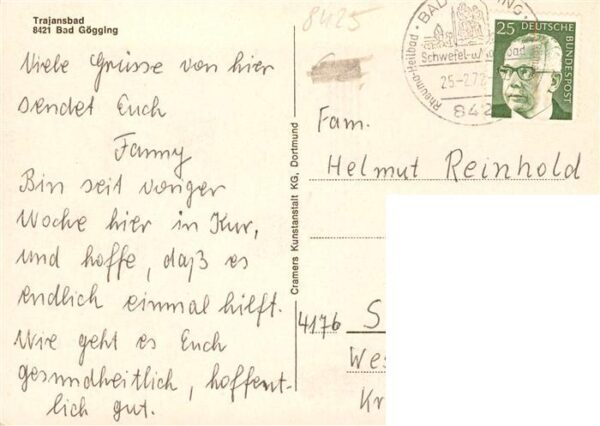 Trajansbad
8421 Bad Gögging
Viele Grüsse von hier
sendet Euch
Fanny
Bin seit voriger
Woche hier in Kur,
und hoffe, daß es
endlich einmal hilft.
Wie geht es Euch
gesundheitlich, hoffent-
lich gut.
Cramers Kunstanstalt KG, Dortmund
8425
BAD
Rheuma-Heilbad
Schwefel-u/
25-2.72
842
25 DEUTSCHE
BUNDESPOST
Fam.
Helmut Reinhold
4176 S
Wes
Kr